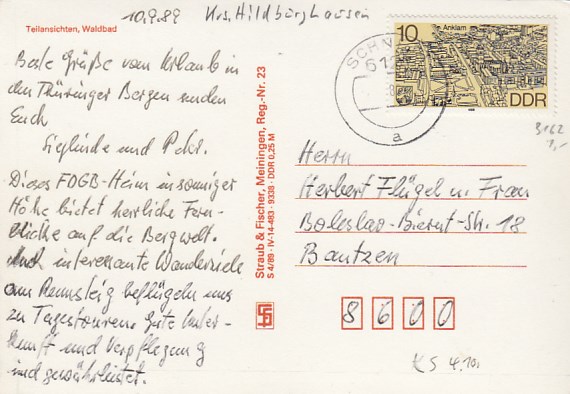 10.9.89 Krs. Hildburghausen
Teilansichten, Waldbad
Beste Grüße vom Urlaub in
den Thüringer Bergen senden
Euch
Sieglinde und Peter.
Dieses FDGB-Heim in sonniger
Höhe bietet herrliche Fern-
blicke auf die Bergwelt.
Auch interessante Wanderziele
am Rennsteig beflügeln uns
zu Tagestouren. Gute Unter-
kunft und Verpflegung
sind gewährleistet.
Straub & Fischer, Meiningen, Reg.-Nr. 23
S 4/89 · IV-14-483 · 9338 · DDR 0,25 M
SCHN
612
a
10
Anklam
DDR
3162
1,-
Herrn
Herbert Flügel u. Frau
Boleslaw-Bierut-Str. 18
Bautzen
8600
KS 4.10.